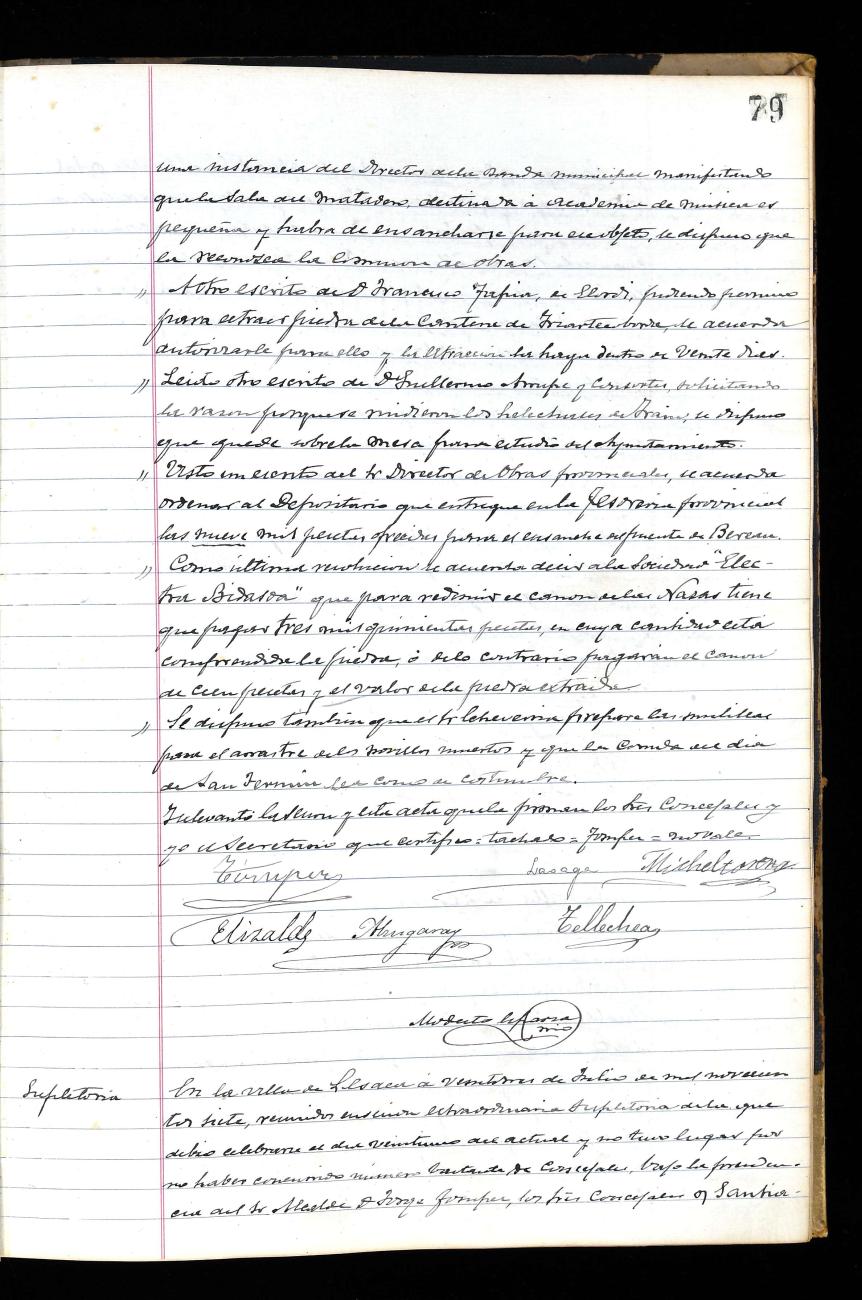 79
una instancia del Director de la Banda municipal manifestando
que la Sala del Matadero, destinada á Academia de música es
pequeña y habra de ensancharse para ese objeto, se dispuso que
la reconozca la Comision de obras.
" A otro escrito de D. Francisco Tapia, de Lloidi, pidiendo permiso
para extraer piedra de la Cantera de Iriarteaborda, se acuerda
autorizarle para ello y la extraccion la haga dentro de veinte dias.
" Leido otro escrito de D. Guillermo Arrupe y Consortes, solicitando
la razon porque se vindieron los helechales de Frain; se dispuso
que quede sobre la mesa para estudio del Ayuntamiento.
" Visto un escrito del Sr Director de Obras provinciales, se acuerda
ordenar al Depositario que entregue en la Tesoreria provincial
las nueve mil pesetas ofrecidas para el ensanche del puente de Berean.
" Como ultima resolucion se acuerda decir a la Sociedad "Elec-
tra Bidasoa" que para redimir el canon de las Nazas tiene
que pagar tres mil quinientas pesetas, en cuya cantidad está
comprendida la piedra, ó de lo contrario pagarán el canon
de cien pesetas y el valor de la piedra extraida.
" Se dispuso tambien que el Sr Echeverria prepare las mulillas
para el arrastre de los novillos muertos y que la Comida del dia
de San Fermin sea como de costumbre.
Se levantó la sesion y esta acta que la firman los Sres Concejales y
yo el Secretario que certifico = tachado = Jomper = no vale.
Tómper Lasaga Micheltorena
Elizalde Abugaray Tellechea
Modesto
Supletoria En la villa de Lesaca á veintitres de Julio de mil novecien
tos siete, reunidos en sesion extraordinaria supletoria de la que
debio celebrarse el dia veintiuno del actual y no tuvo lugar por
no haber concurrido número bastante de Concejales, bajo la presiden-
cia del Sr Alcalde D. Jorge Jomper, los Sres Concejales D. Santia-